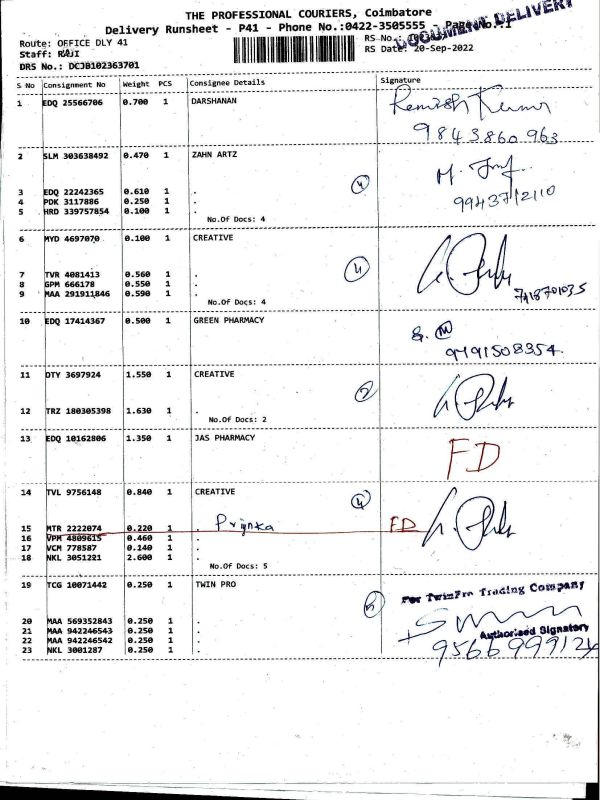 THE PROFESSIONAL COURIERS, Coimbatore
Delivery Runsheet - P41 - Phone No.:0422-3505555 - Page No.:1
DOCUMENT DELIVERY
Route: OFFICE DLY 41
RS No.:
Staff: RAJI
RS Date: 20-Sep-2022
DRS No.: DCJB102363701
S No Consignment No Weight PCS Consignee Details Signature
1 EDQ 25566706 0.700 1 DARSHANAN
Remish Kumar
9843860963
2 SLM 303638492 0.470 1 ZAHN ARTZ
3 EDQ 22242365 0.610 1 . 4
4 PDK 3117886 0.250 1 . 9943712110
5 HRD 339757854 0.100 1 .
No.Of Docs: 4
6 MYD 4697070 0.100 1 CREATIVE
7 TVR 4081413 0.560 1 . 4
8 GPM 666178 0.550 1 .
9 MAA 291911846 0.590 1 . 7418701035
No.Of Docs: 4
10 EDQ 17414367 0.500 1 GREEN PHARMACY
9791508354
11 DTY 3697924 1.550 1 CREATIVE
2
12 TRZ 180305398 1.630 1 .
No.Of Docs: 2
13 EDQ 10162806 1.350 1 JAS PHARMACY
FD
14 TVL 9756148 0.840 1 CREATIVE
4
15 MTR 2222074 0.220 1 . Priynka FD
16 VPM 4809615 0.460 1 .
17 VCM 778587 0.140 1 .
18 NKL 3051221 2.600 1 .
No.Of Docs: 5
19 TCG 10071442 0.250 1 TWIN PRO
For TwinPro Trading Company
5
20 MAA 569352843 0.250 1 .
21 MAA 942246543 0.250 1 . Authorised Signatory
22 MAA 942246542 0.250 1 .
23 NKL 3001287 0.250 1 . 9566999124